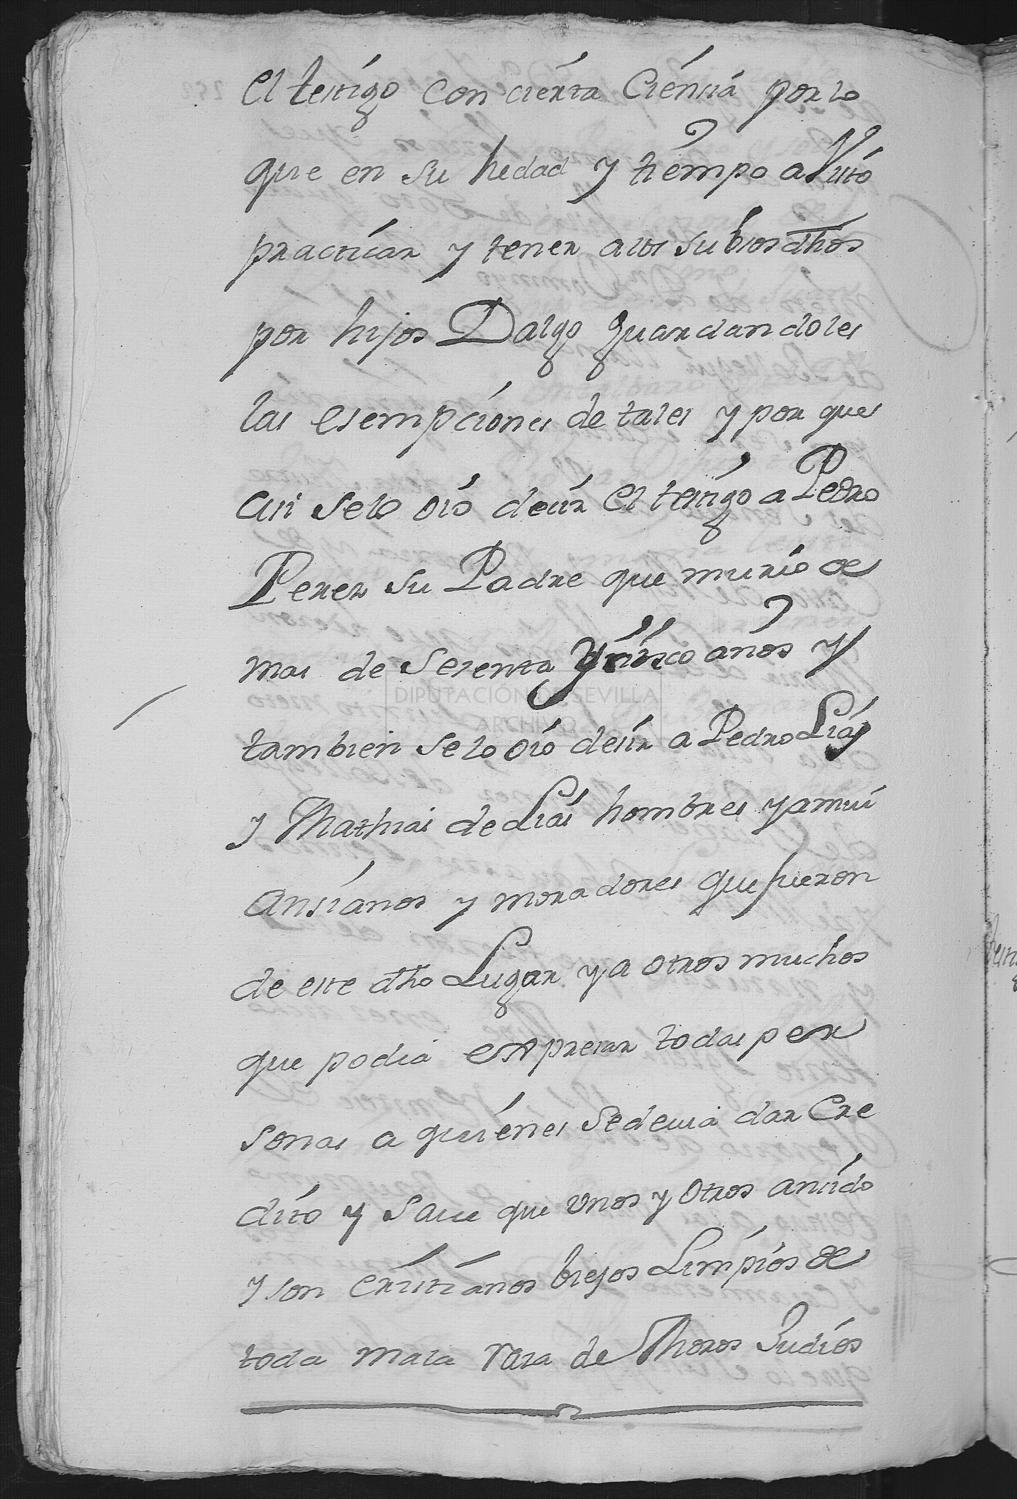 el testigo con cierta Ciensia por lo
que en su hedad y tiempo a visto
practicar y tener a los subsodhõs
por hijos Dalgo guardandoles
las esempciones de tales y por que
asi se lo oio desir el testigo a Pedro
Perez su Padre que murio de
mas de setenta y sinco años y
DIPUTACIÓN DE SEVILLA
ARCHIVO
tambien se lo oio desir a Pedro Lias
y Mathias de Lias hombres ya mui
Ansianos y moradores que fueron
de este dho Lugar y a otros muchos
que podia expresar todas per
sonas a quienes se devia dar Cre
dito y save que unos y otros an sido
y son Cristianos biejos Limpios de
toda mala rasa de Moros Judios